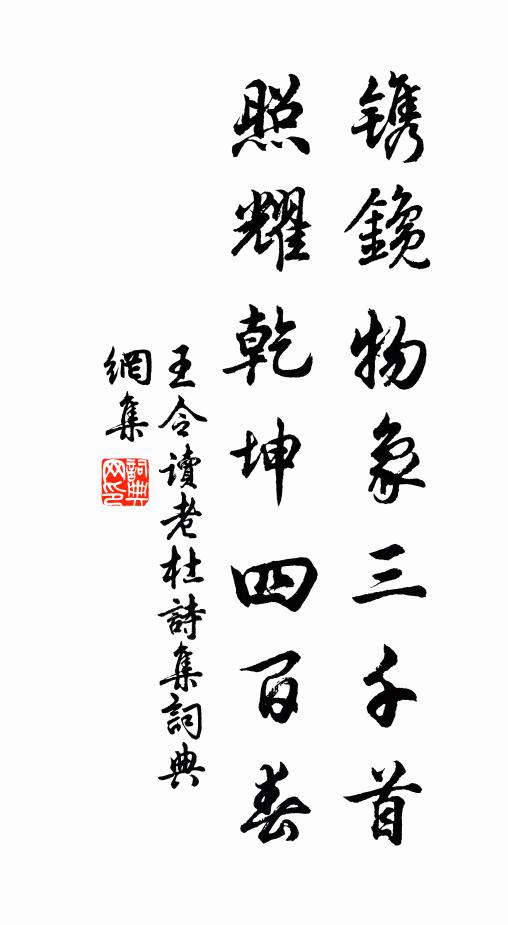 鐫鑱物象三千首
照耀乾坤四百春
王令讀老杜詩集詞典
網集
詞典
网印